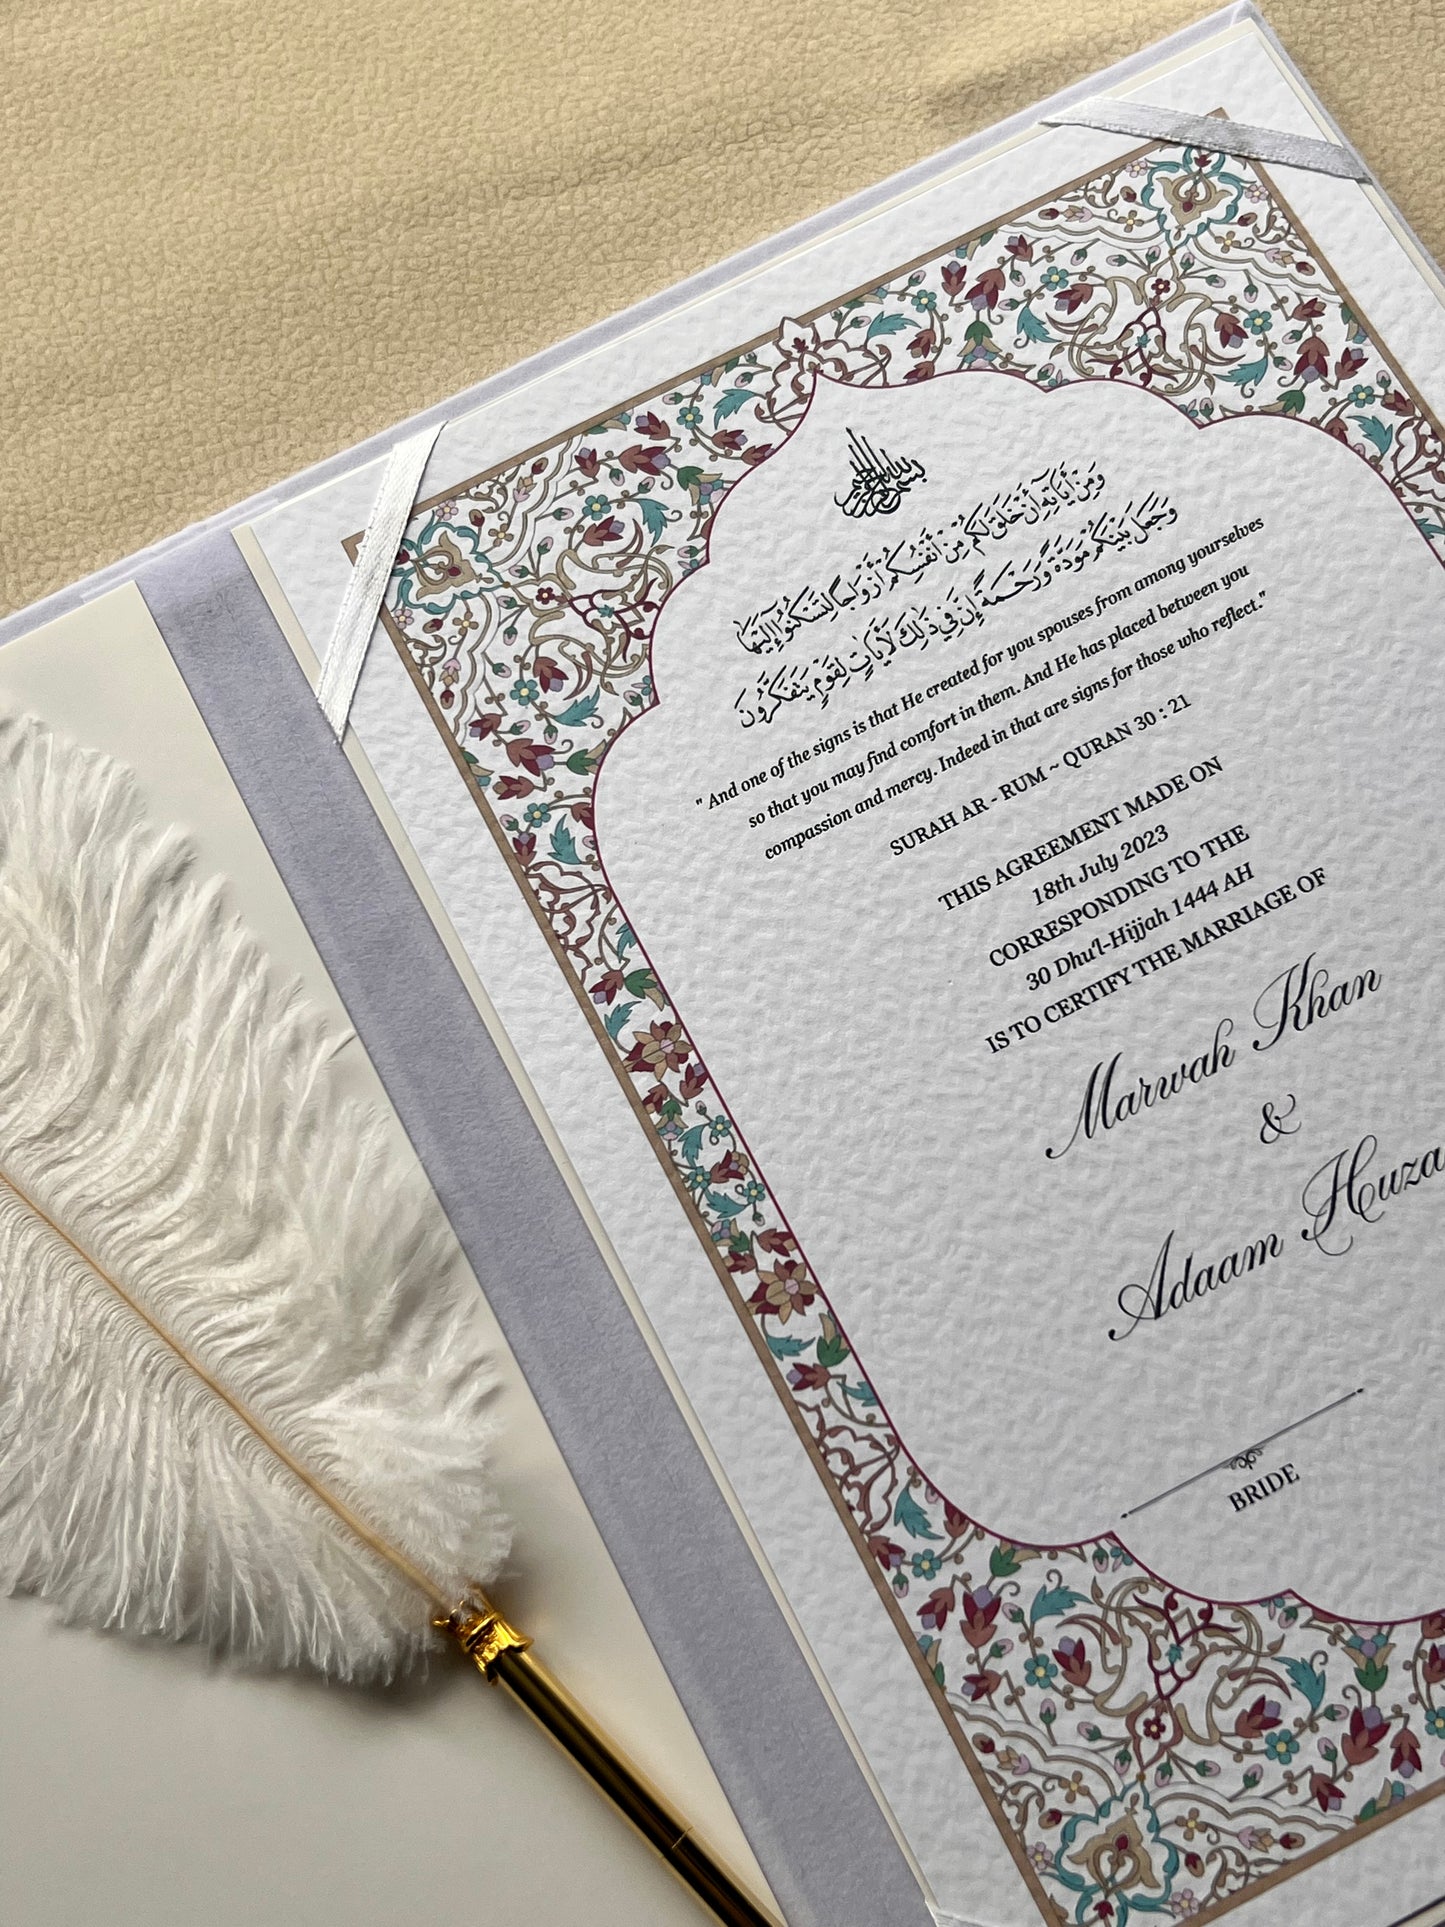 بسم الله الرحمن الرحيم
وَمِنْ أَيَاتِهِ أَنْ خَلَقَ لَكُم مِنْ أَنْفُسِكُم أَزْوَاجًا لِتَسْكُنُوا إِلَيْهَا
وَجَعَلَ بَيْنَكُمْ مَوَدَّةً وَرَحْمَةً إِنَّ فِي ذَلِكَ لَأَيَاتٍ لِقَوْمٍ يَتَفَكَّرُونَ
" And one of the signs is that He created for you spouses from among yourselves
so that you may find comfort in them. And He has placed between you
compassion and mercy. Indeed in that are signs for those who reflect."
SURAH AR - RUM ~ QURAN 30 : 21
THIS AGREEMENT MADE ON
18th July 2023
CORRESPONDING TO THE
30 Dhu'l-Hijjah 1444 AH
IS TO CERTIFY THE MARRIAGE OF
Marwah Khan
&
Adaam Huza
BRIDE